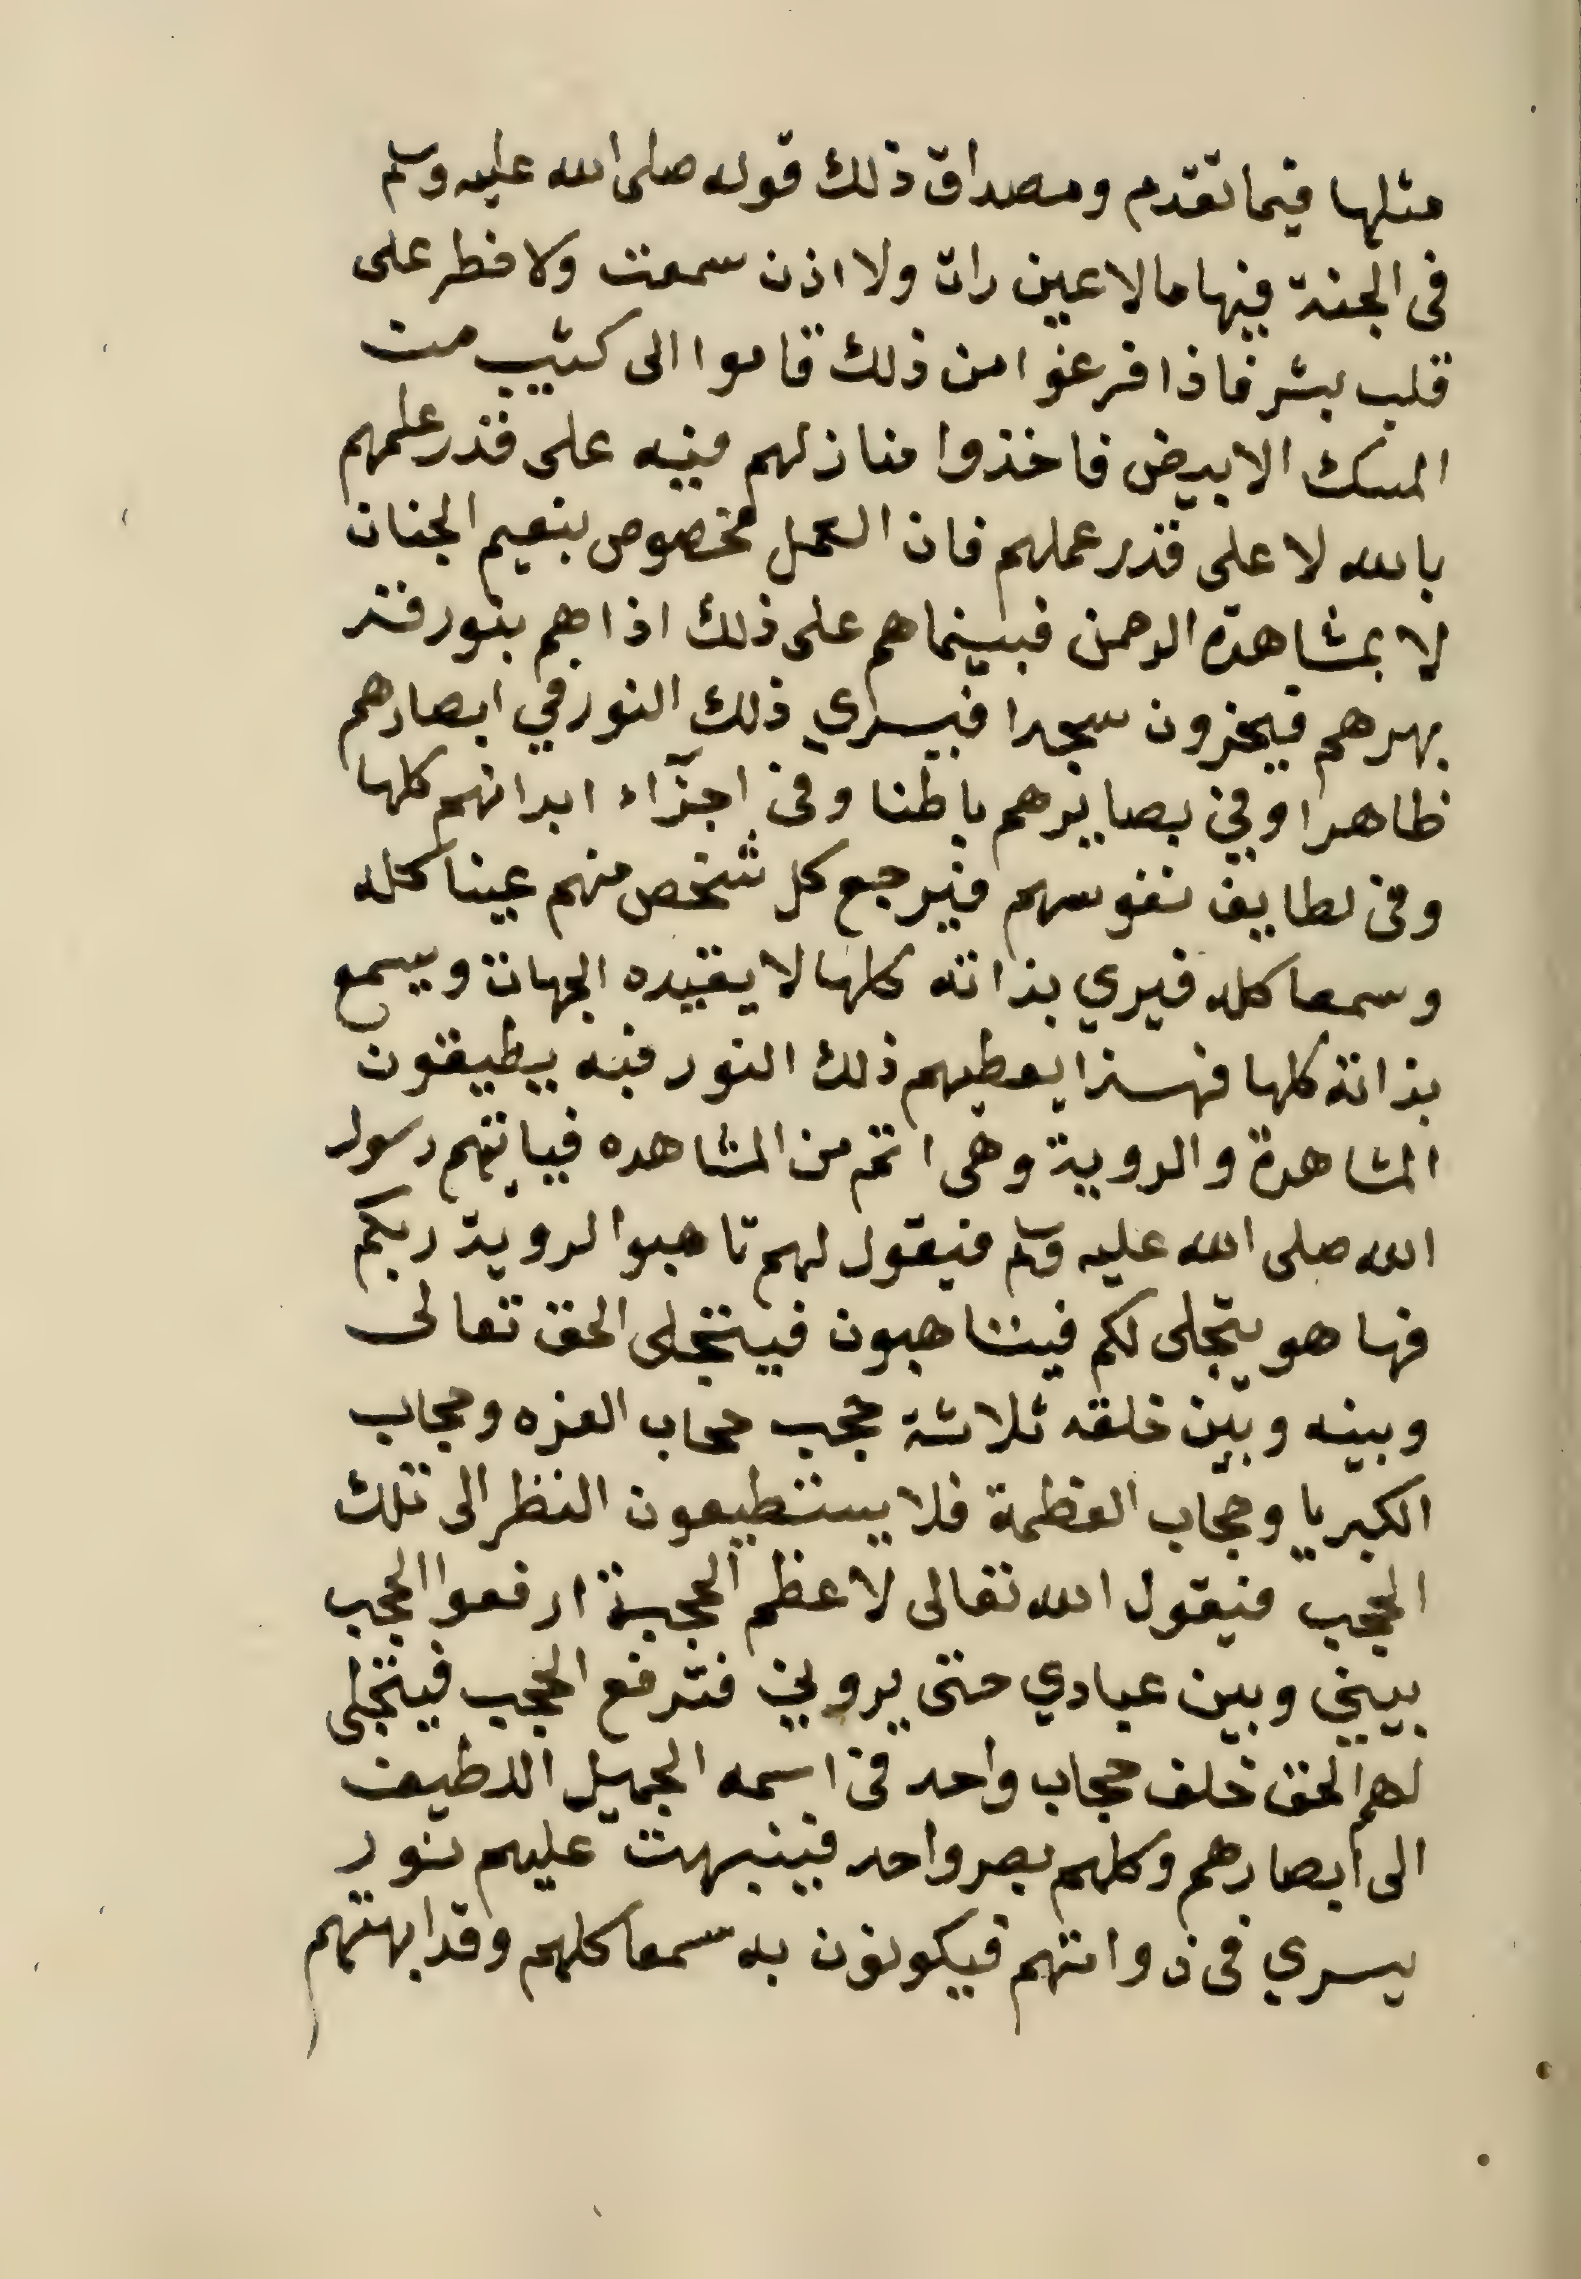 مثلها فيما تقدم ومصداق ذلك قوله صلى الله عليه وسلم
فى الجنة فيها ما لا عين رات ولا اذن سمعت ولا خطر على
قلب بشر فاذا فرغوا من ذلك قاموا الى كثيب من
المسك الابيض فاخذوا منازلهم فيه على قدر علمهم
بالله لا على قدر عملهم فان العمل مخصوص بنعيم الجنان
لا بمشاهدة الرحمن فبينما هم على ذلك اذا هم بنور قد
بهرهم فيخرون سجدا فيسري ذلك النور في ابصارهم
ظاهرا وفي بصايرهم باطنا وفى اجزآء ابدانهم كلها
وفى لطايف نفوسهم فيرجع كل شخص منهم عينا كله
وسمعا كله فيري بذاته كلها لا يقيده الجهات ويسمع
بذاته كلها فهذا يعطيهم ذلك النور فبه يطيقون
المشاهدة والروية وهى اتم من المشاهده فياتيهم رسول
الله صلى الله عليه وسلم فيقول لهم تاهبوا لروية ربكم
فها هو يتجلى لكم فيتاهبون فيتجلى الحق تعالى
وبينه وبين خلقه ثلاثة حجب حجاب العزه وحجاب
الكبريا وحجاب العظمة فلا يستطيعون النظر الى تلك
الحجب فيقول الله تعالى لاعظم الحجبة ارفعوا الحجب
بيني وبين عبادي حتى يروني فترفع الحجب فيتجلى
لهم الحق خلف حجاب واحد فى اسمه الجميل اللطيف
الى ابصارهم وكلهم بصر واحد فينبهت عليهم نور
يسري فى ذواتهم فيكونون به سمعا كلهم وقد ابهتهم